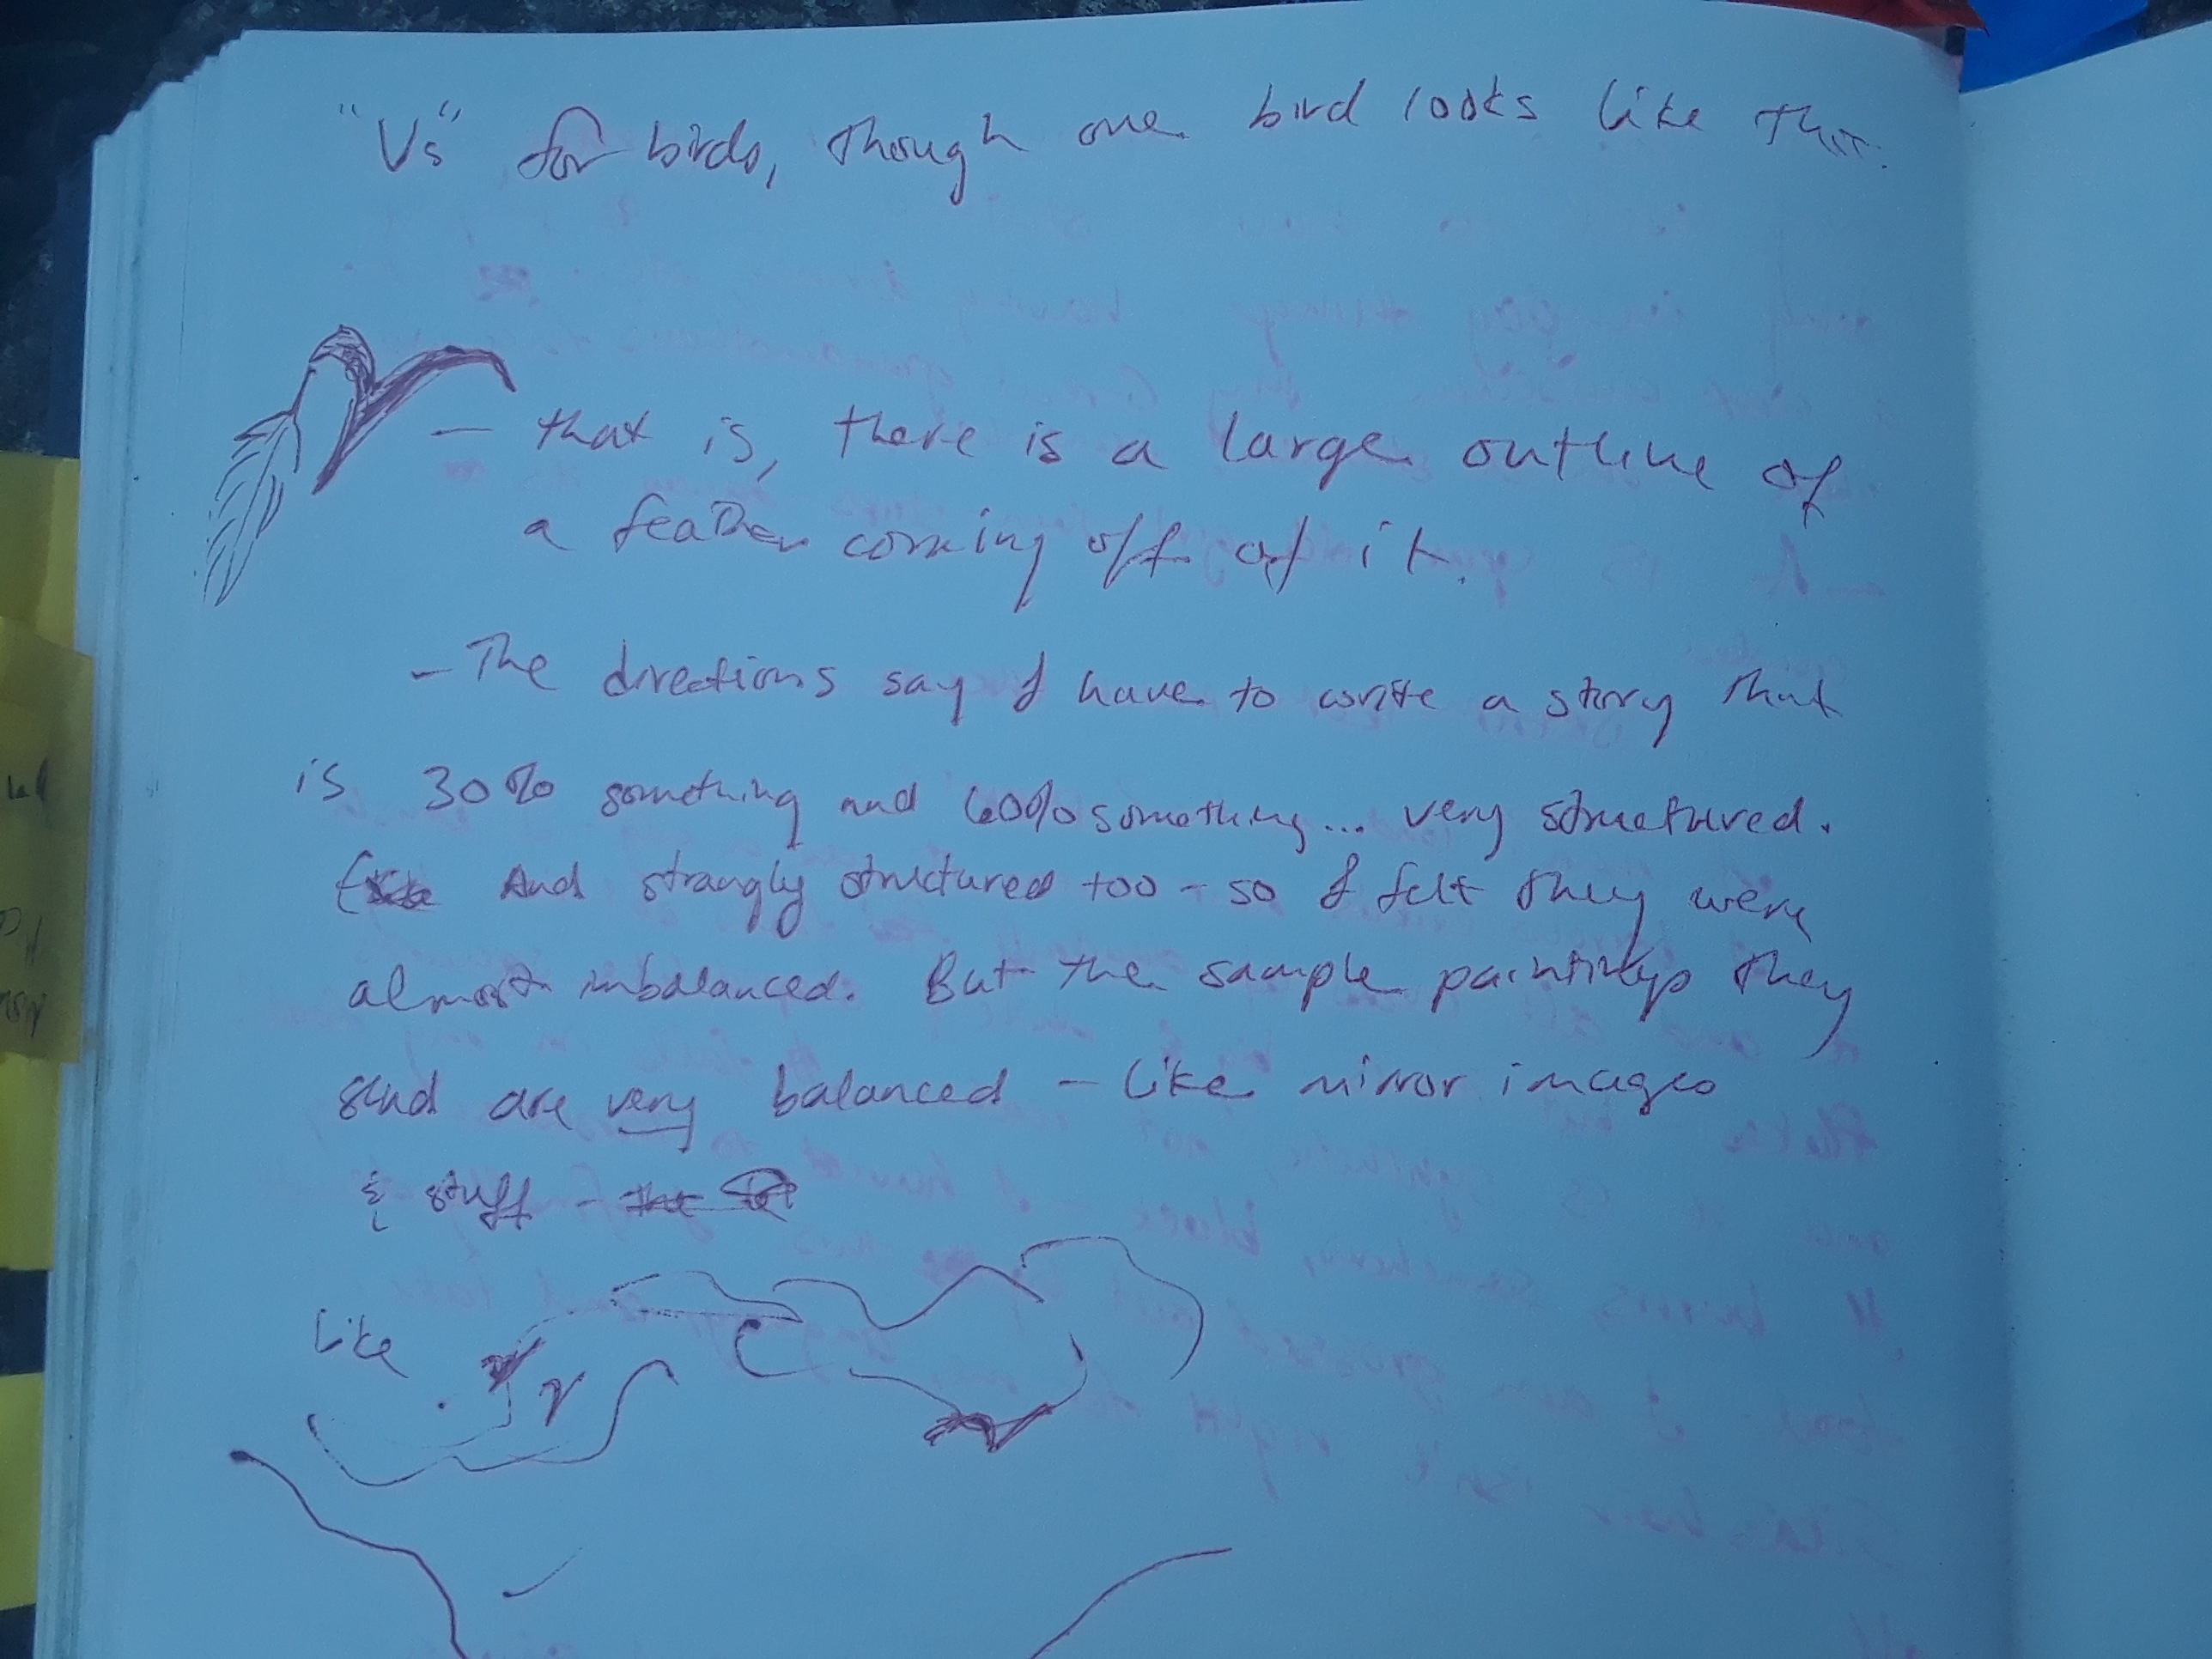 "Vs" for birds, though one bird looks like this:
— that is, there is a large outline of
a feather coming off of it.
- The directions say I have to write a story that
is 30% something and 60% something... very structured.
And strangly structured too - so I felt they were
almost imbalanced. But the sample paintings they
send are very balanced - like mirror images
& stuff -
like